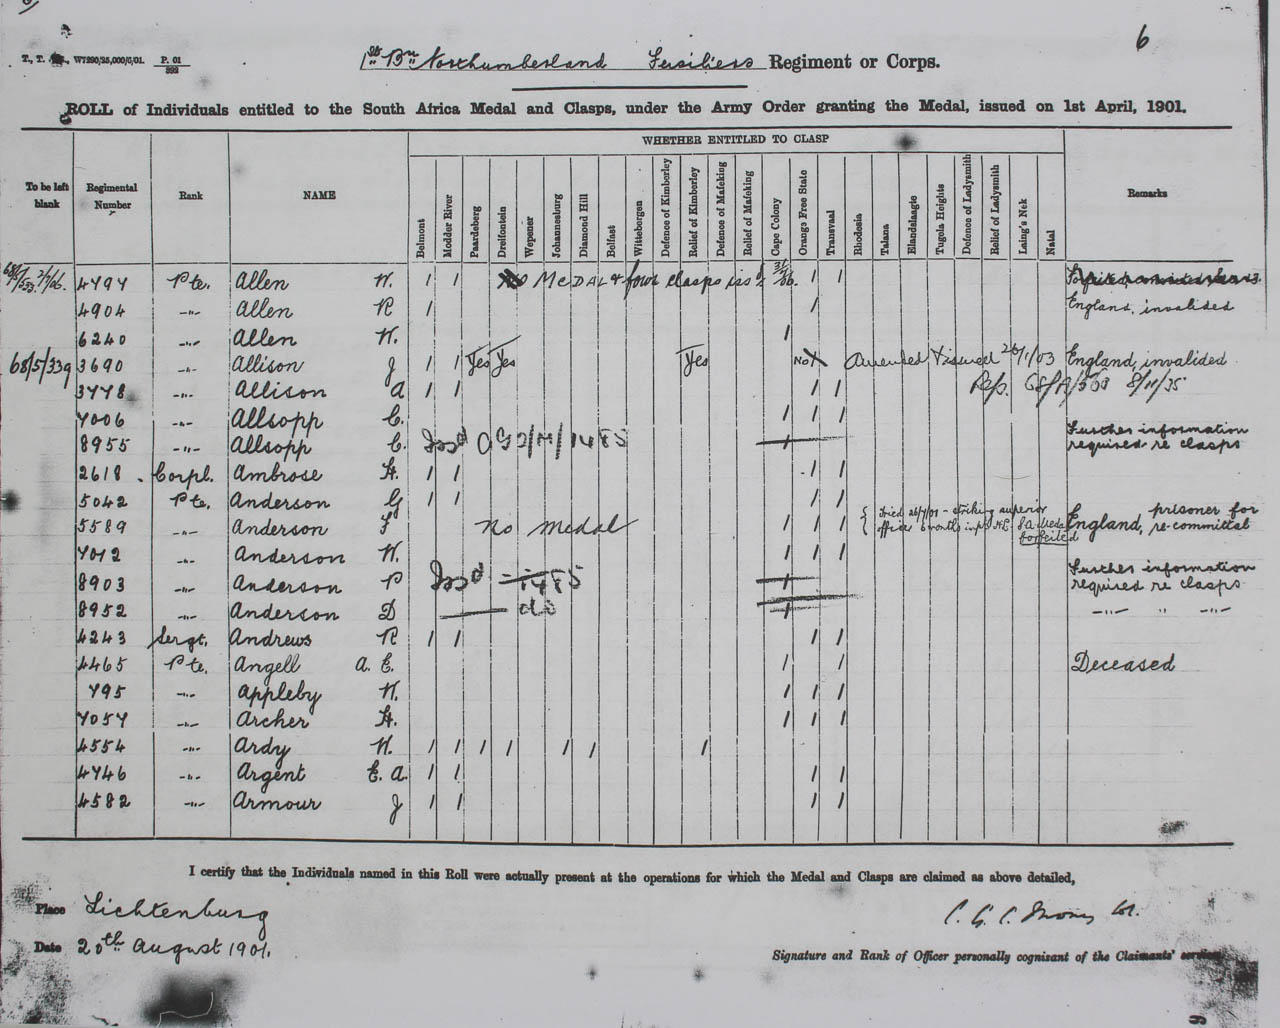 6
T., T. W7290/25,000/6/01. P. 01 / 392
1st Bn Northumberland Fusiliers Regiment or Corps.
ROLL of Individuals entitled to the South Africa Medal and Clasps, under the Army Order granting the Medal, issued on 1st April, 1901.
WHETHER ENTITLED TO CLASP
To be left blank Regimental Number Rank NAME Belmont Modder River Paardeberg Dreifontein Wepener Johannesburg Diamond Hill Belfast Wittebergen Defence of Kimberley Relief of Kimberley Defence of Mafeking Relief of Mafeking Cape Colony Orange Free State Transvaal Rhodesia Talana Elandslaagte Tugela Heights Defence of Ladysmith Relief of Ladysmith Laing's Nek Natal Remarks
4794 Pte. Allen W. 1 1 Medal & four clasps issd 1 1
4904 -"- Allen R 1 1 England, invalided
6240 -"- Allen W. 1
68/5/339 3690 -"- Allison J 1 1 Yes Yes Yes No X Amended & issued 26/1/03 England, invalided
3448 -"- Allison A 1 1 1 1 8/11/35
4006 -"- Allsopp C. 1 1 1
8955 -"- Allsopp C. Issd 1 Further information required re clasps
2618 Corpl. Ambrose H. 1 1 1 1
5042 Pte. Anderson G 1 1 1 1
5589 -"- Anderson F No medal 1 1 1 { Tried 26/7/01 - striking superior officer 6 months S.A. Medal forfeited England, prisoner for re-committal
4012 -"- Anderson W. 1 1 1
8903 -"- Anderson P Issd 1485 1 Further information required re clasps
8952 -"- Anderson D do 1 -"- " -"-
4243 Sergt. Andrews R 1 1 1 1
4465 Pte. Angell A. E. 1 1 Deceased
495 -"- Appleby W. 1 1 1
4054 -"- Archer H. 1 1 1
4554 -"- Ardy W. 1 1 1 1 1 1 1
4746 -"- Argent E. A. 1 1 1 1
4582 -"- Armour J 1 1 1 1
I certify that the Individuals named in this Roll were actually present at the operations for which the Medal and Clasps are claimed as above detailed,
Place Lichtenburg
C. G. C. Money Col.
Date 20th August 1901.
Signature and Rank of Officer personally cognisant of the Claimants' services